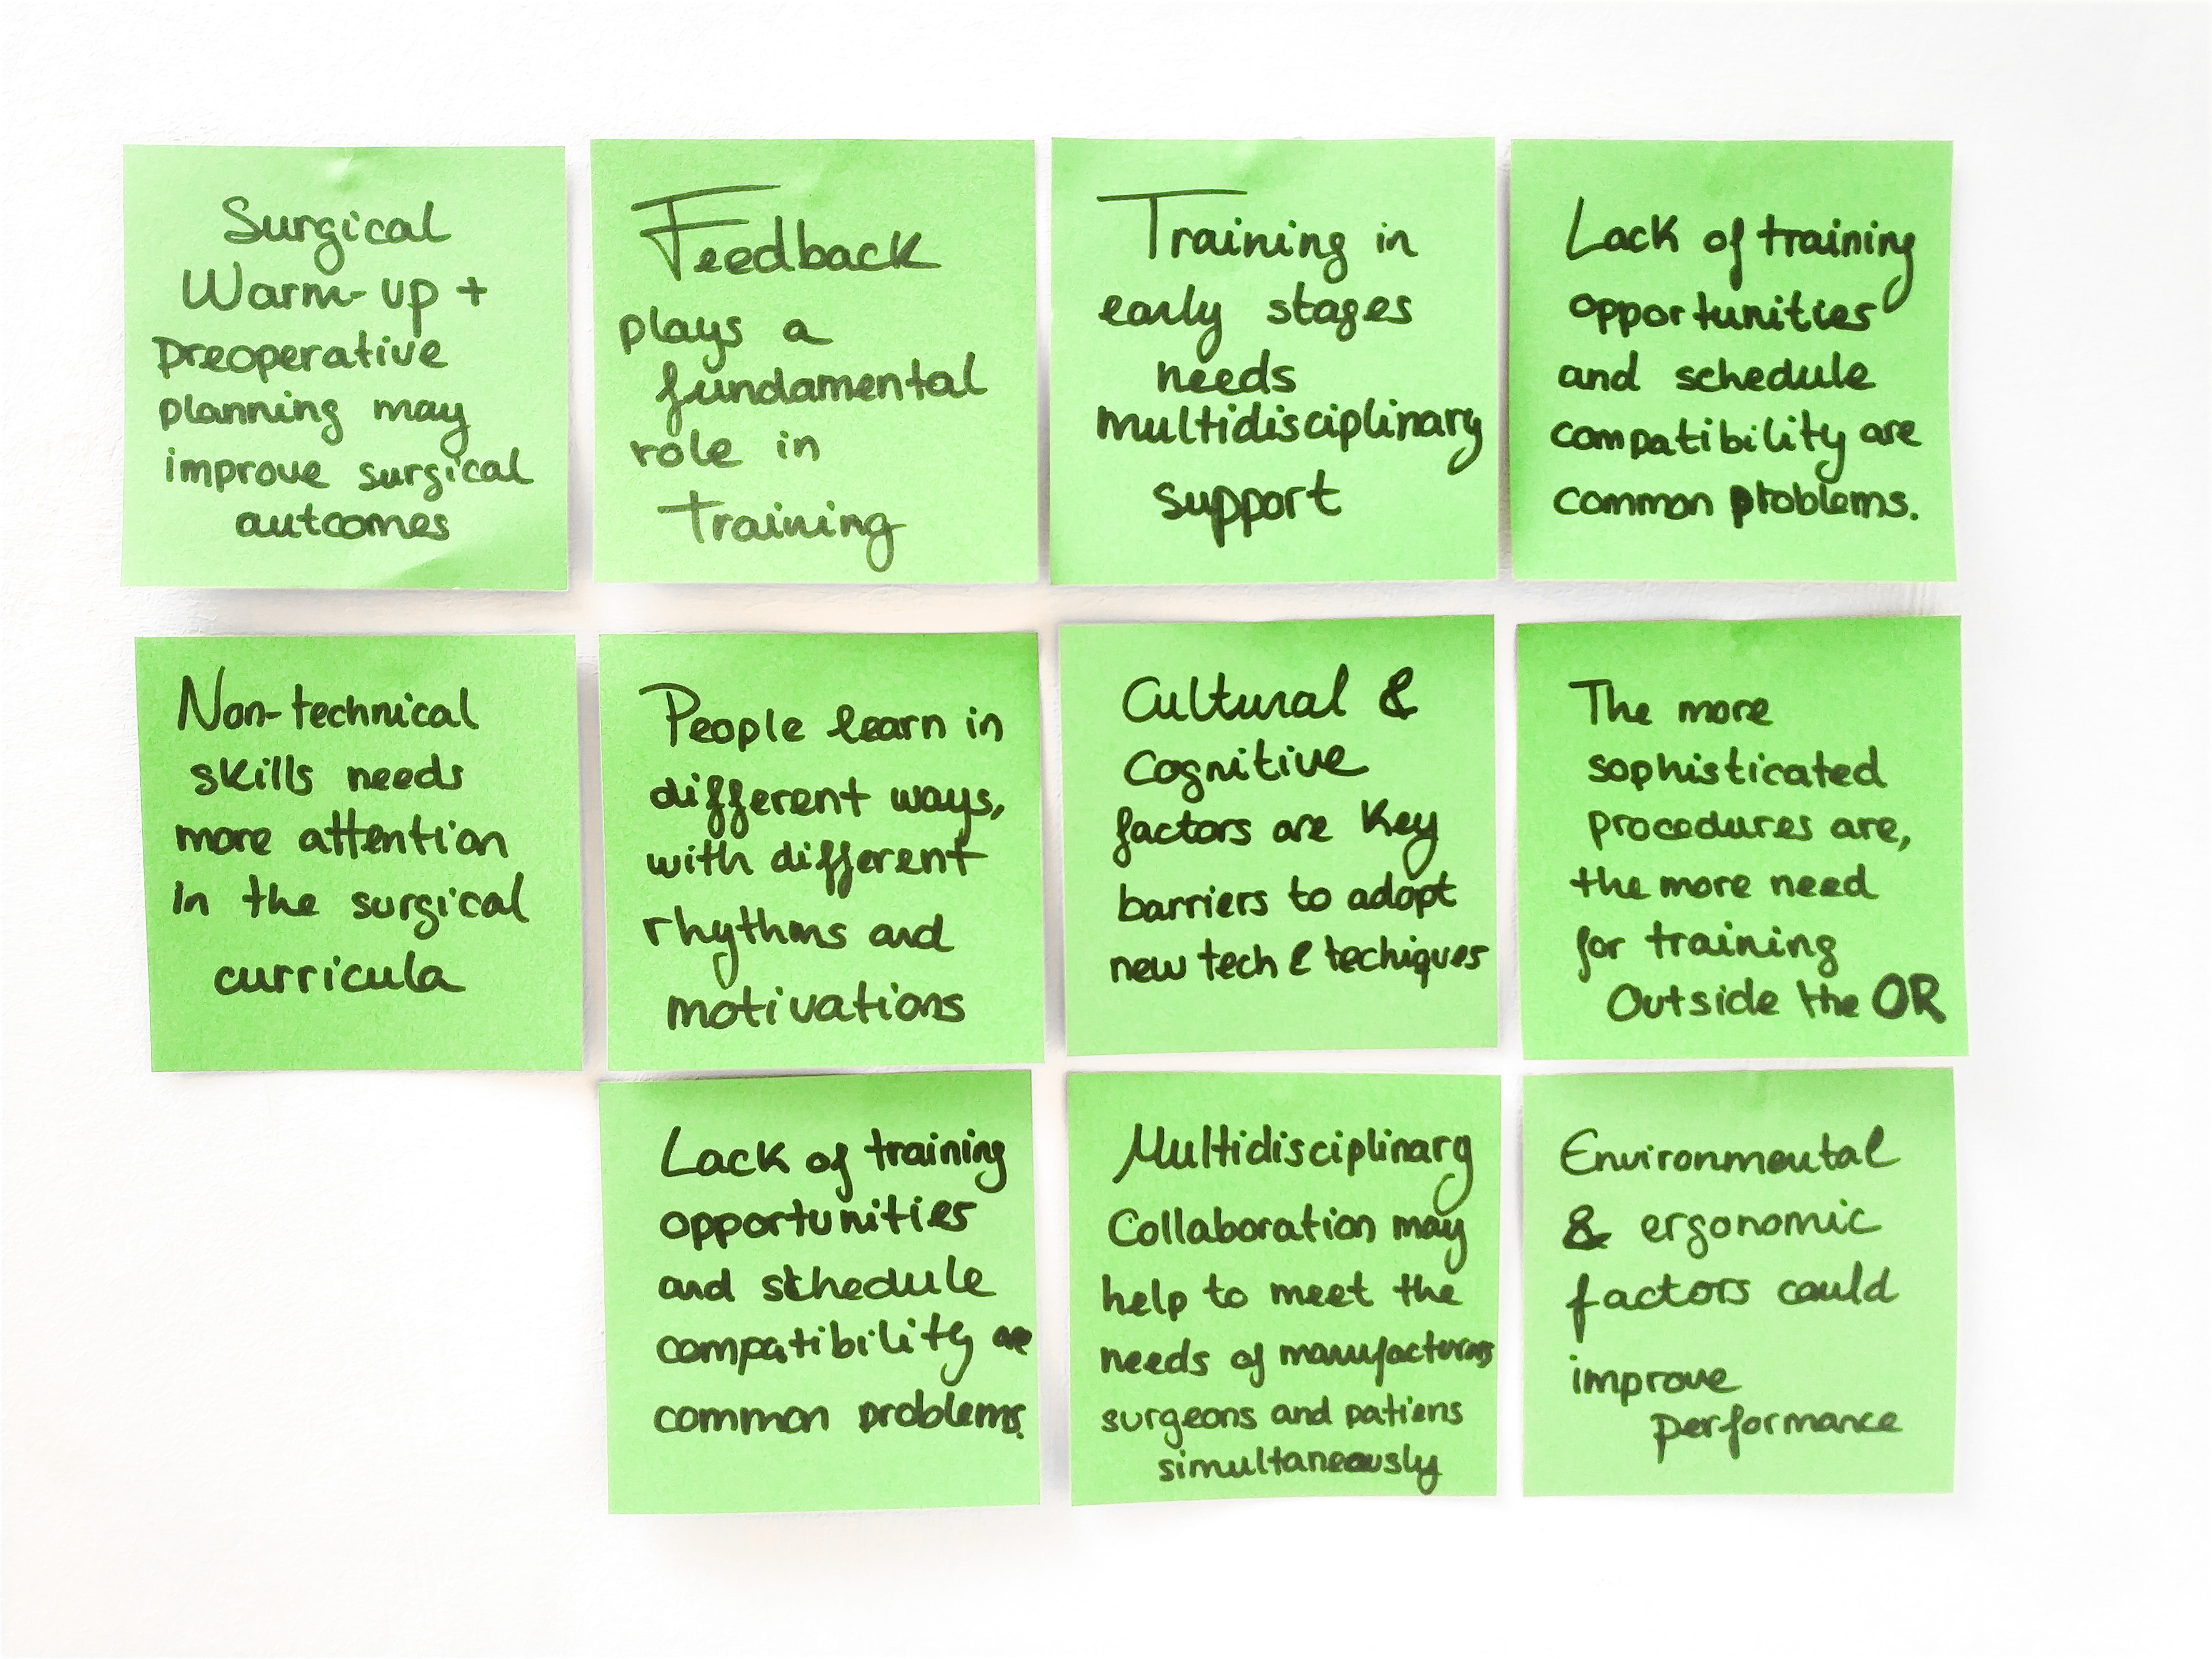 Surgical
Warm-up +
Preoperative
planning may
improve surgical
outcomes
Feedback
plays a
fundamental
role in
Training
Training in
early stages
needs
multidisciplinary
support
Lack of training
opportunities
and schedule
compatibility are
common problems.
Non-technical
skills needs
more attention
in the surgical
curricula
People learn in
different ways,
with different
rhythms and
motivations
Cultural &
Cognitive
factors are key
barriers to adopt
new tech & techiques
The more
sophisticated
procedures are,
the more need
for training
Outside the OR
Lack of training
opportunities
and schedule
compatibility are
common problems.
Multidisciplinary
Collaboration may
help to meet the
needs of manufacturers
surgeons and patiens
simultaneously
Environmental
& ergonomic
factors could
improve
performance